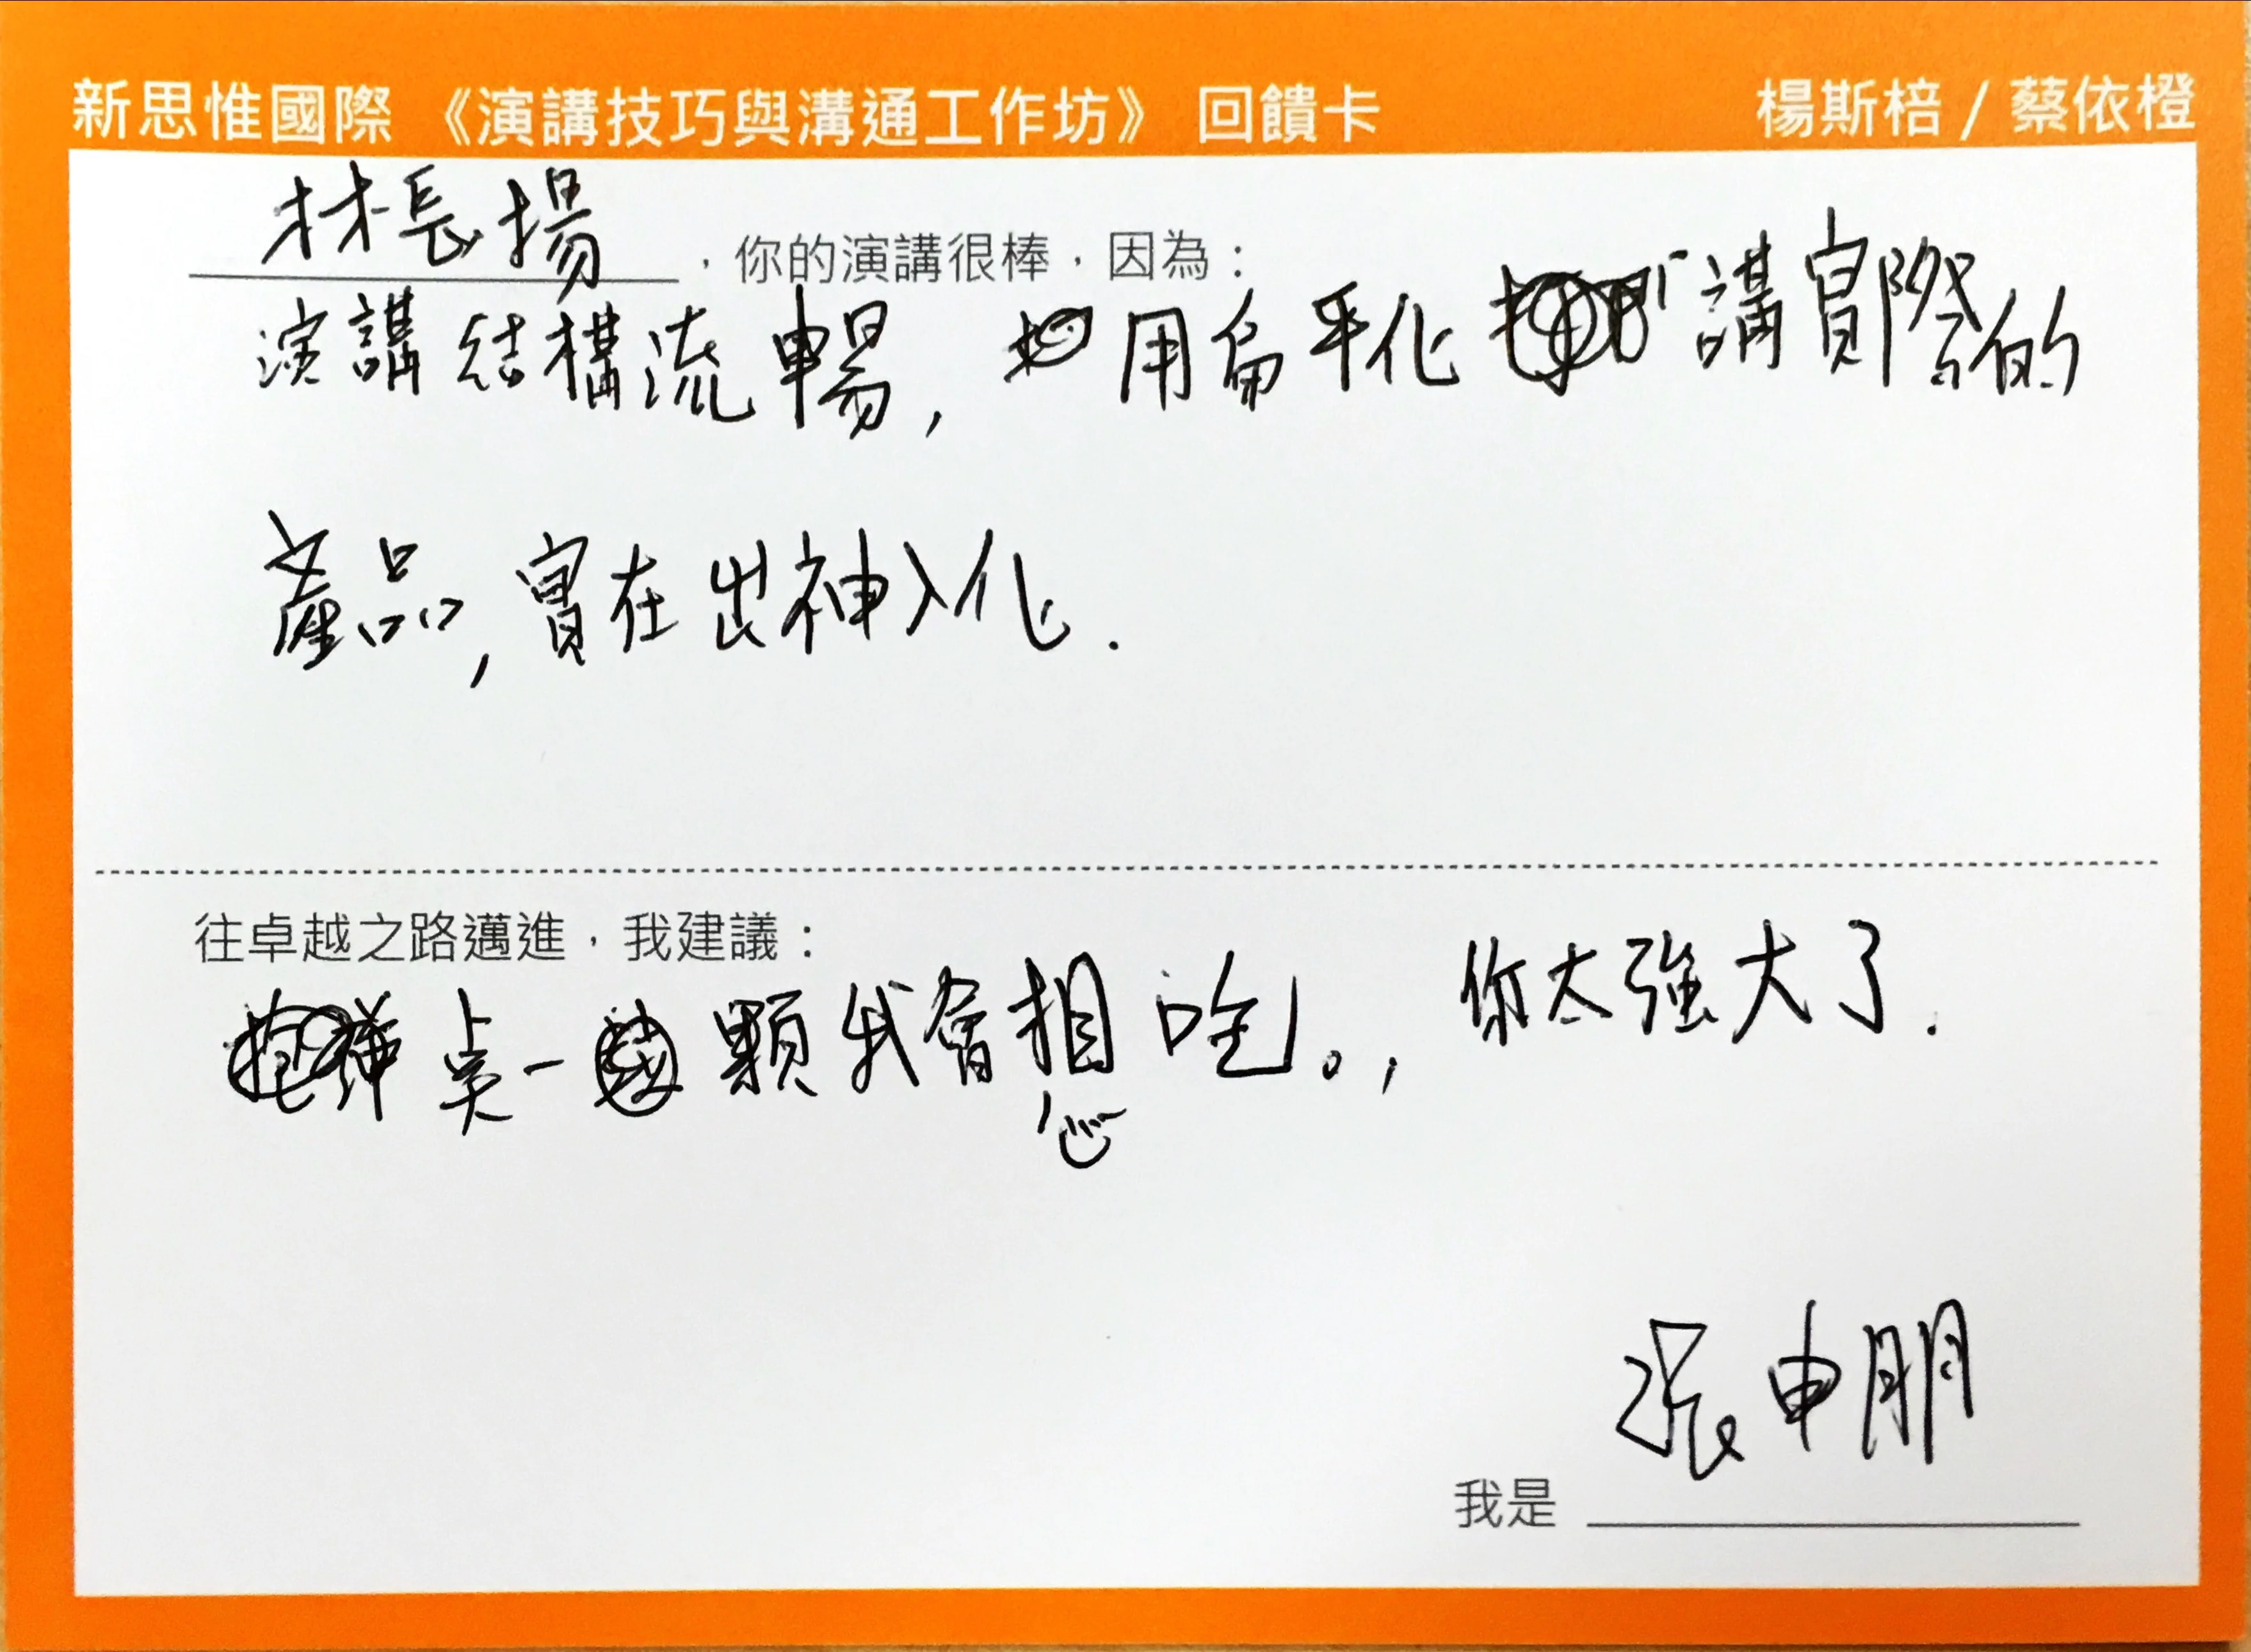 新思惟國際 《演講技巧與溝通工作坊》 回饋卡 楊斯棓 / 蔡依橙
林長揚,你的演講很棒,因為:
演講結構流暢, 用扁平化講實際的
產品,實在出神入化.
往卓越之路邁進,我建議:
吳一顆我會想吃。, 你太強大了.
張申朋
我是